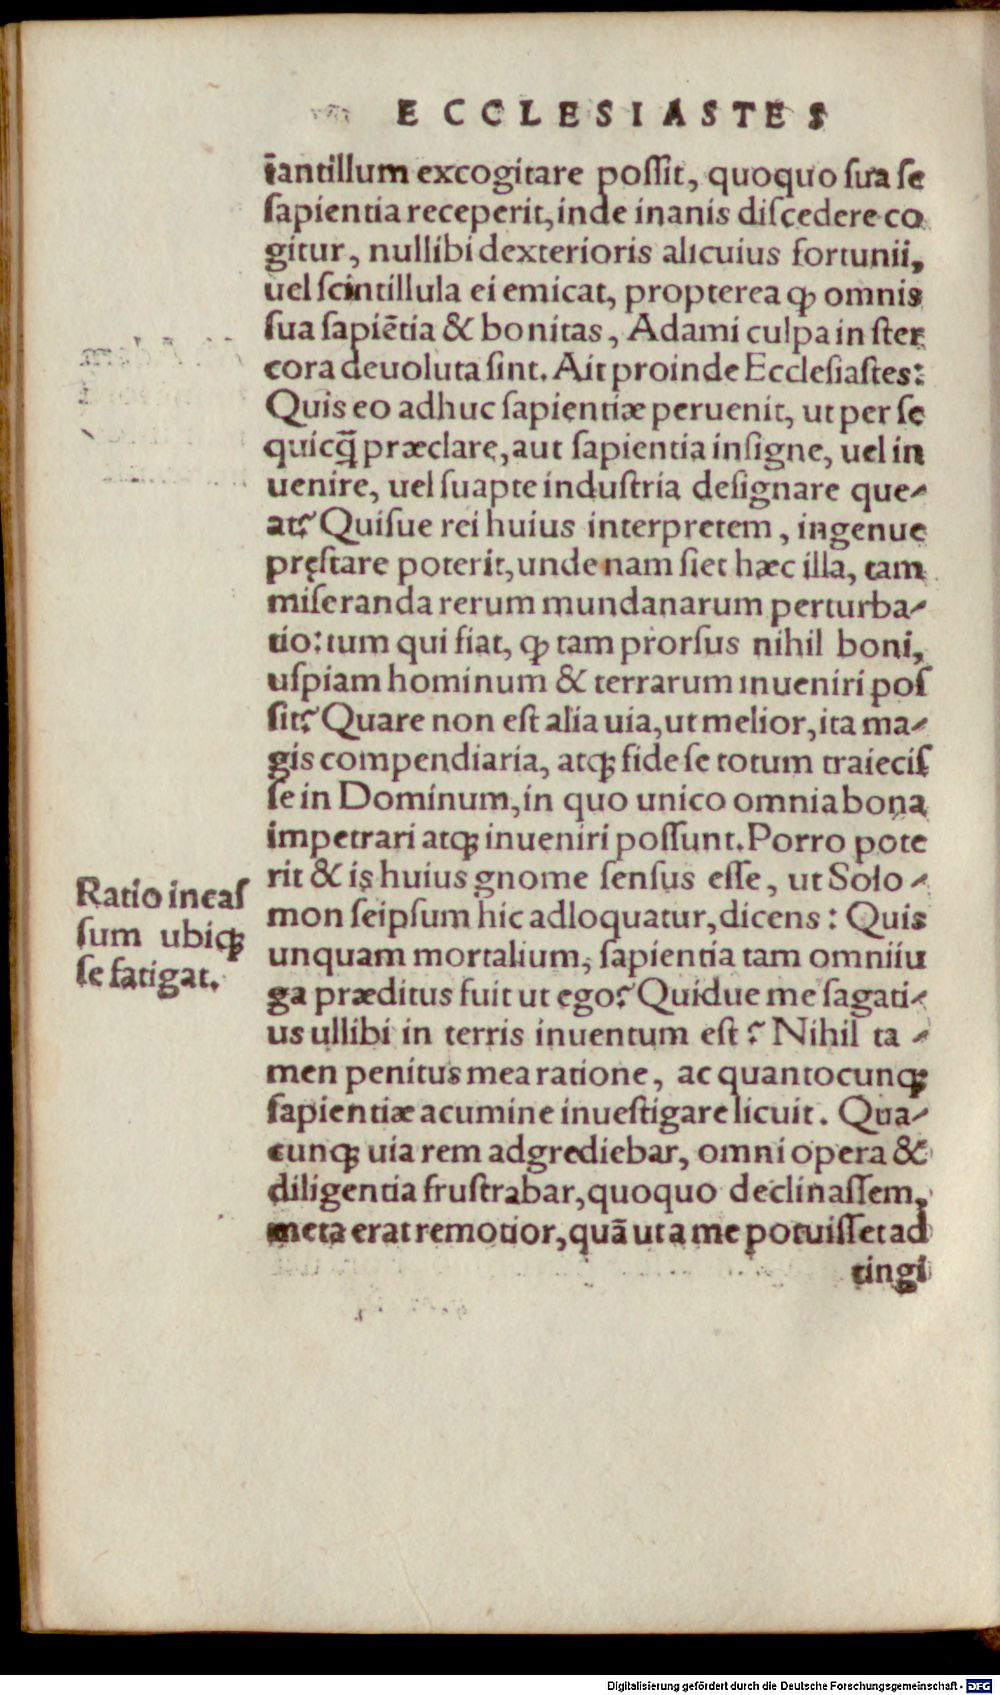 ECCLESIASTES
tantillum excogitare poſſit, quoquo ſua ſe
ſapientia receperit, inde inanis diſcedere co
gitur, nullibi dexterioris alicuius fortunii,
uel ſcintillula ei emicat, propterea ꝙ omnis
ſua ſapiētia & bonitas, Adami culpa in ſter
cora deuoluta ſint. Ait proinde Eccleſiaſtes:
Quis eo adhuc ſapientiæ peruenit, ut per ſe
quicq̄ præclare, aut ſapientia inſigne, uel in
uenire, uel ſuapte induſtria deſignare que-
at? Quiſue rei huius interpretem, ingenue
pręſtare poterit, unde nam ſiet hæc illa, tam
miſeranda rerum mundanarum perturba-
tio: tum qui fiat, ꝙ tam prorſus nihil boni,
uſpiam hominum & terrarum inueniri poſ
ſit? Quare non eſt alia uia, ut melior, ita ma-
gis compendiaria, atqꝫ fide ſe totum traieciſ
ſe in Dominum, in quo unico omnia bona
impetrari atqꝫ inueniri poſſunt. Porro pote
rit & is huius gnome ſenſus eſſe, ut Solo-
mon ſeipſum hic adloquatur, dicens: Quis
unquam mortalium, ſapientia tam omniiu
ga præditus fuit ut ego? Quidue me ſagati-
us ullibi in terris inuentum eſt? Nihil ta-
men penitus mea ratione, ac quantocunqꝫ
ſapientiæ acumine inueſtigare licuit. Qua-
cunqꝫ uia rem adgrediebar, omni opera &
diligentia fruſtrabar, quoquo declinaſſem,
meta erat remotior, quā ut a me potuiſſet ad
tingi
Ratio incaſ
ſum ubiqꝫ
ſe fatigat.
Digitalisierung gefördert durch die Deutsche Forschungsgemeinschaft - DFG